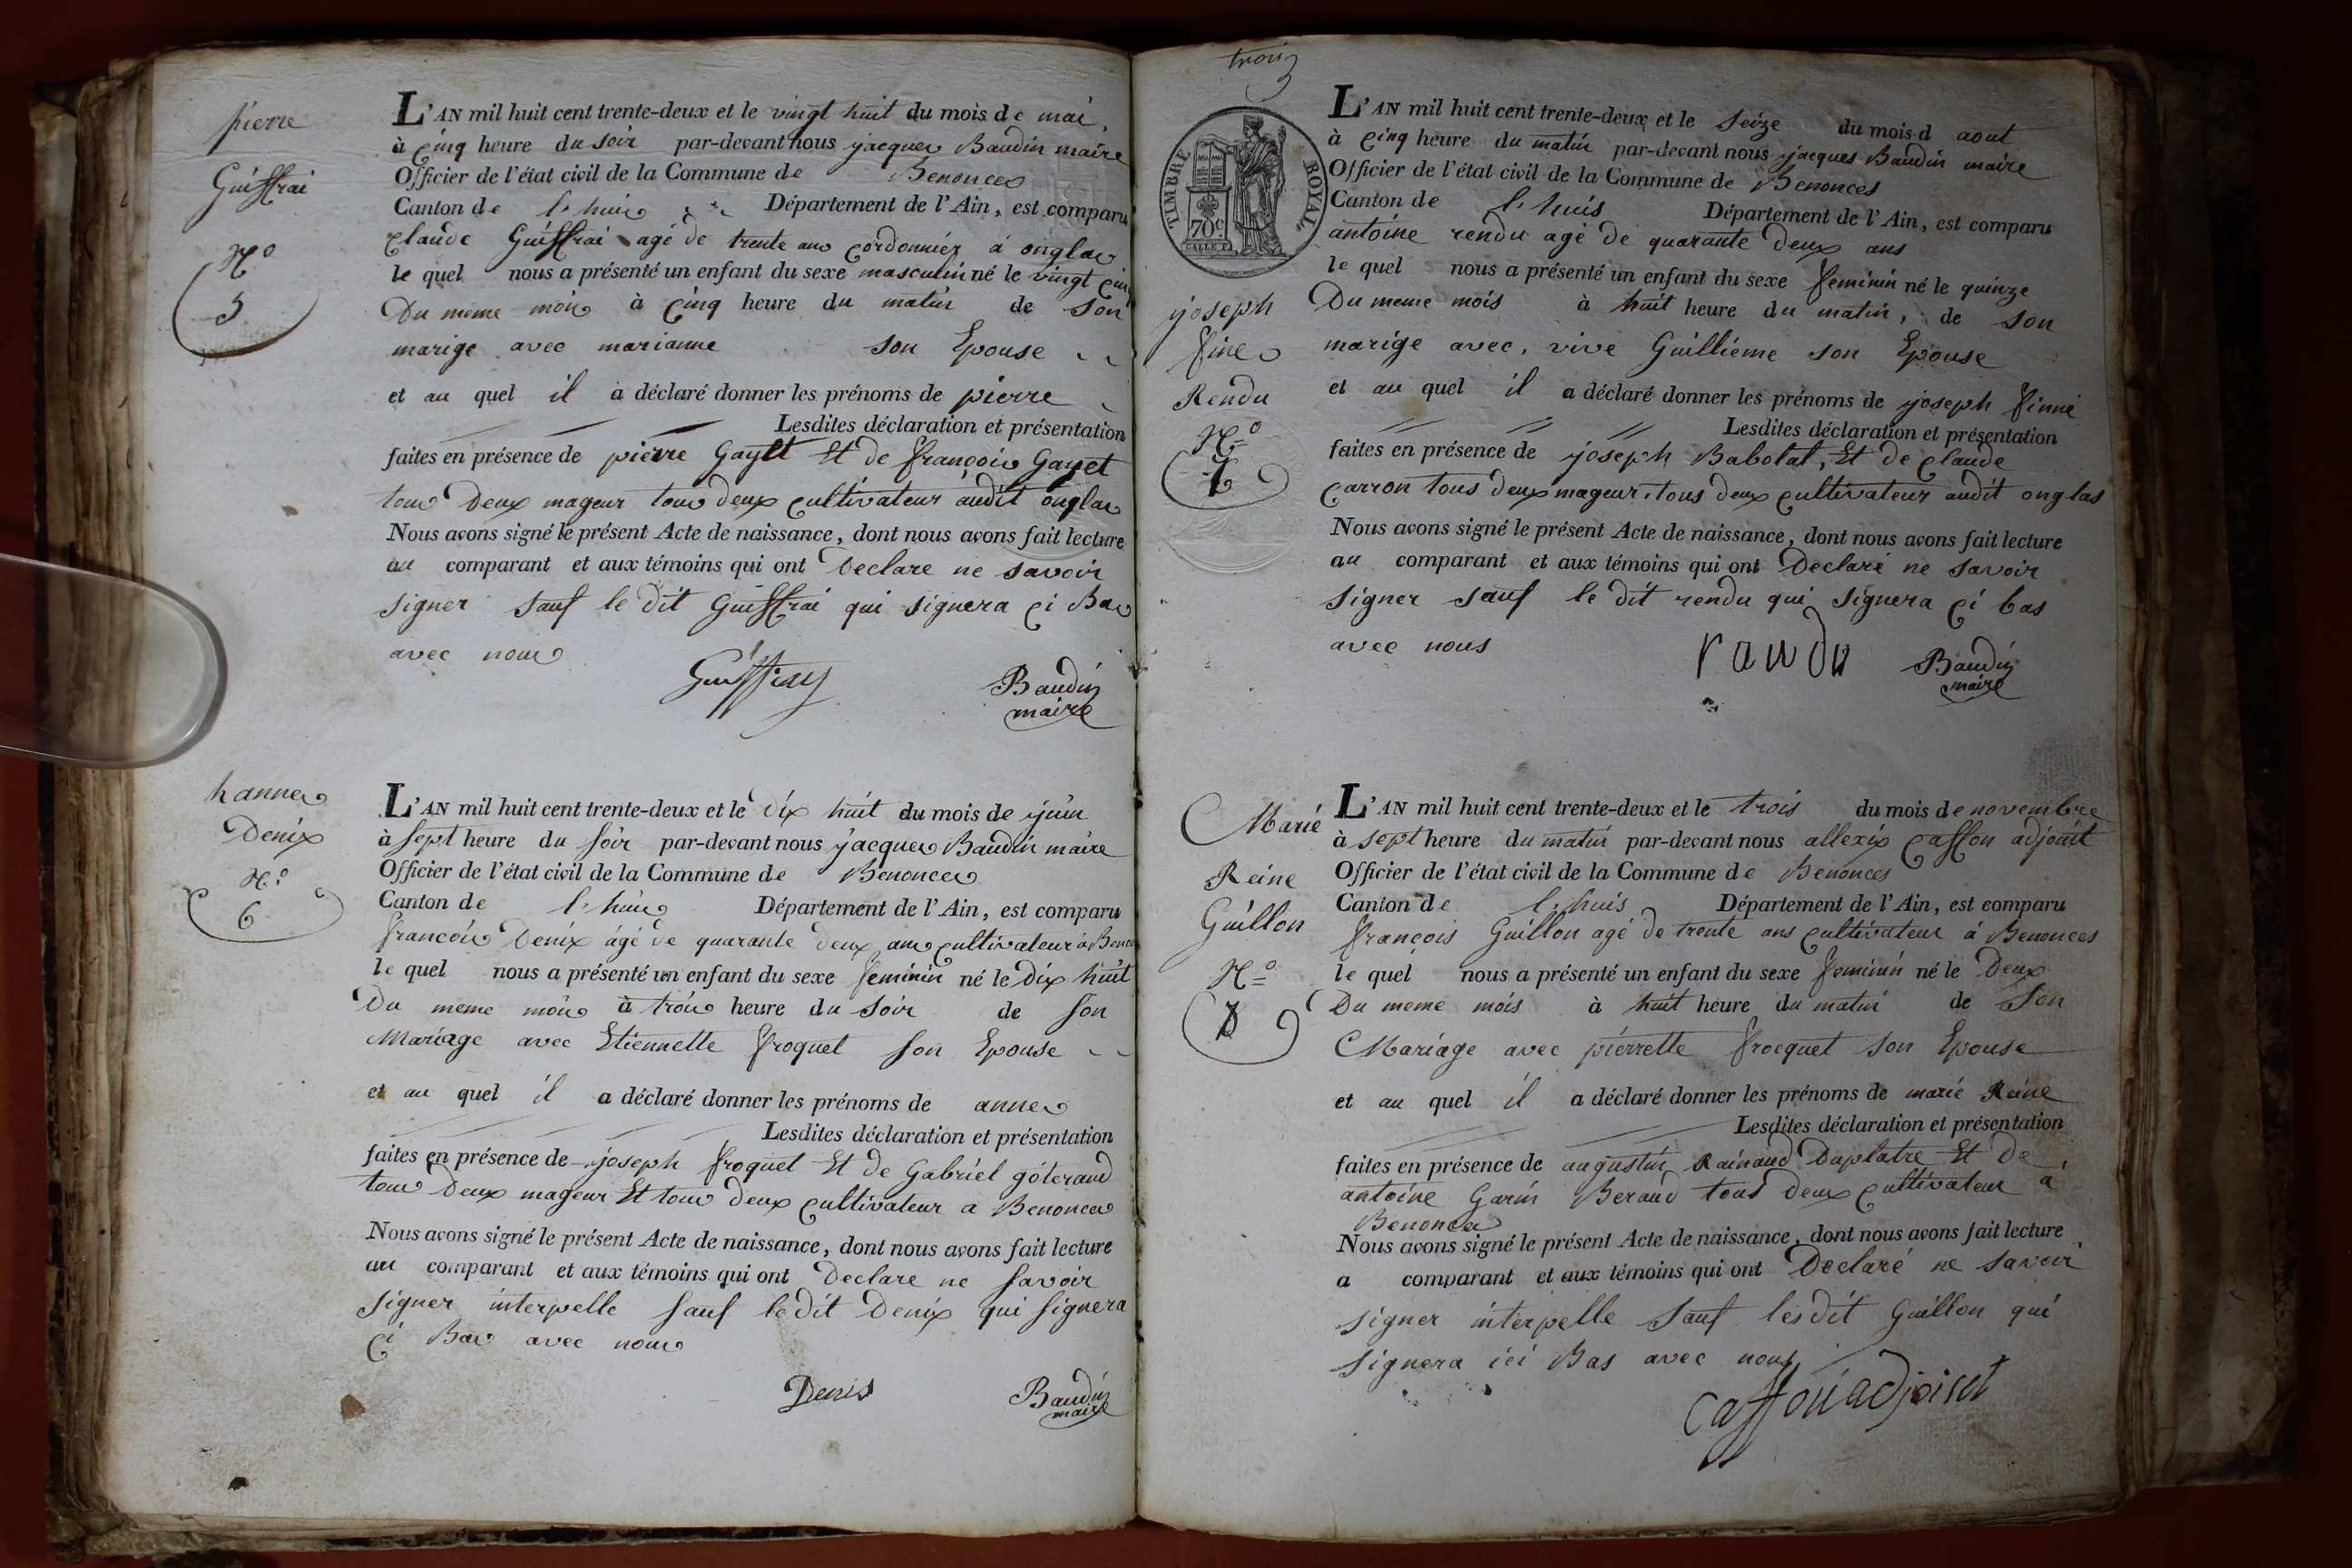 pierre
Guiffrai
N.o
5
L'AN mil huit cent trente-deux et le vingt huit du mois de mai
à cinq heure du soir par-devant nous jacques Baudin maire
Officier de l'état civil de la Commune de Benonces
Canton de l'huis Département de l'Ain, est comparu
claude Guiffrai agé de trente ans cordonnier à onglas
le quel nous a présenté un enfant du sexe masculin né le vingt cinq
Du meme mois à cinq heure du matin de son
marige avec marianne son Epouse
et au quel il a déclaré donner les prénoms de pierre
Lesdites déclaration et présentation
faites en présence de pierre Gayet Et de françois Gayet
tous Deux mageur tous deux cultivateur audit onglas
Nous avons signé le présent Acte de naissance, dont nous avons fait lecture
au comparant et aux témoins qui ont Declare ne savoir
signer sauf le dit Guiffrai qui signera ci Bas
avec nous
Guiffray Baudin
maire
hannes
Denix
N.o
6
L'AN mil huit cent trente-deux et le dix huit du mois de juin
à sept heure du soir par-devant nous jacques Baudin maire
Officier de l'état civil de la Commune de Benonces
Canton de l'huis Département de l'Ain, est comparu
francois Denix âgé de quarante deux ans cultivateur à
le quel nous a présenté un enfant du sexe feminin né le dix huit
Du meme mois à trois heure du soir de son
Mariage avec Etiennette froquet son Epouse
et au quel il a déclaré donner les prénoms de annes
Lesdites déclaration et présentation
faites en présence de joseph froquet Et de Gabriel goteraud
tous Deux mageur Et tous deux cultivateur a Benonces
Nous avons signé le présent Acte de naissance, dont nous avons fait lecture
au comparant et aux témoins qui ont Declare ne savoir
signer interpelle sauf le dit Denix qui signera
ci Bas avec nous
Denis Baudin
maire
trois
TIMBRE ROYAL
70c
joseph
fine
Rendu
N.o
7
L'AN mil huit cent trente-deux et le seize du mois d aout
à cinq heure du matin par-devant nous jacques Baudin maire
Officier de l'état civil de la Commune de Benonces
Canton de l'huis Département de l'Ain, est comparu
antoine rendu agé de quarante deux ans
le quel nous a présenté un enfant du sexe feminin né le quinze
Du meme mois à huit heure du matin, de son
marige avec, vive Guillieme son Epouse
et au quel il a déclaré donner les prénoms de joseph finne
Lesdites déclaration et présentation
faites en présence de joseph Babolat, Et de claude
carron tous deux mageur, tous deux cultivateur audit onglas
Nous avons signé le présent Acte de naissance, dont nous avons fait lecture
au comparant et aux témoins qui ont Declaré ne savoir
signer sauf le dit rendu qui signera ci bas
avec nous
randu Baudin
maire
Marie
Reine
Guillon
N.o
8
L'AN mil huit cent trente-deux et le trois du mois de novembre
à sept heure du matin par-devant nous allexix casson adjoint
Officier de l'état civil de la Commune de Benonces
Canton de l'huis Département de l'Ain, est comparu
françois Guillon agé de trente ans cultivateur à Benonces
le quel nous a présenté un enfant du sexe feminin né le Deux
Du meme mois à huit heure du matin de son
Mariage avec pierrette frocquet son Epouse
et au quel il a déclaré donner les prénoms de marie Reine
Lesdites déclaration et présentation
faites en présence de augustin Rainaud Duplatre Et De
antoine Garin Beraud tous deux cultivateur à
Benonces
Nous avons signé le présent Acte de naissance, dont nous avons fait lecture
a comparant et aux témoins qui ont Declaré ne savoir
signer interpelle sauf lesdit Guillon qui
signera ici Bas avec nous
casson adjoint